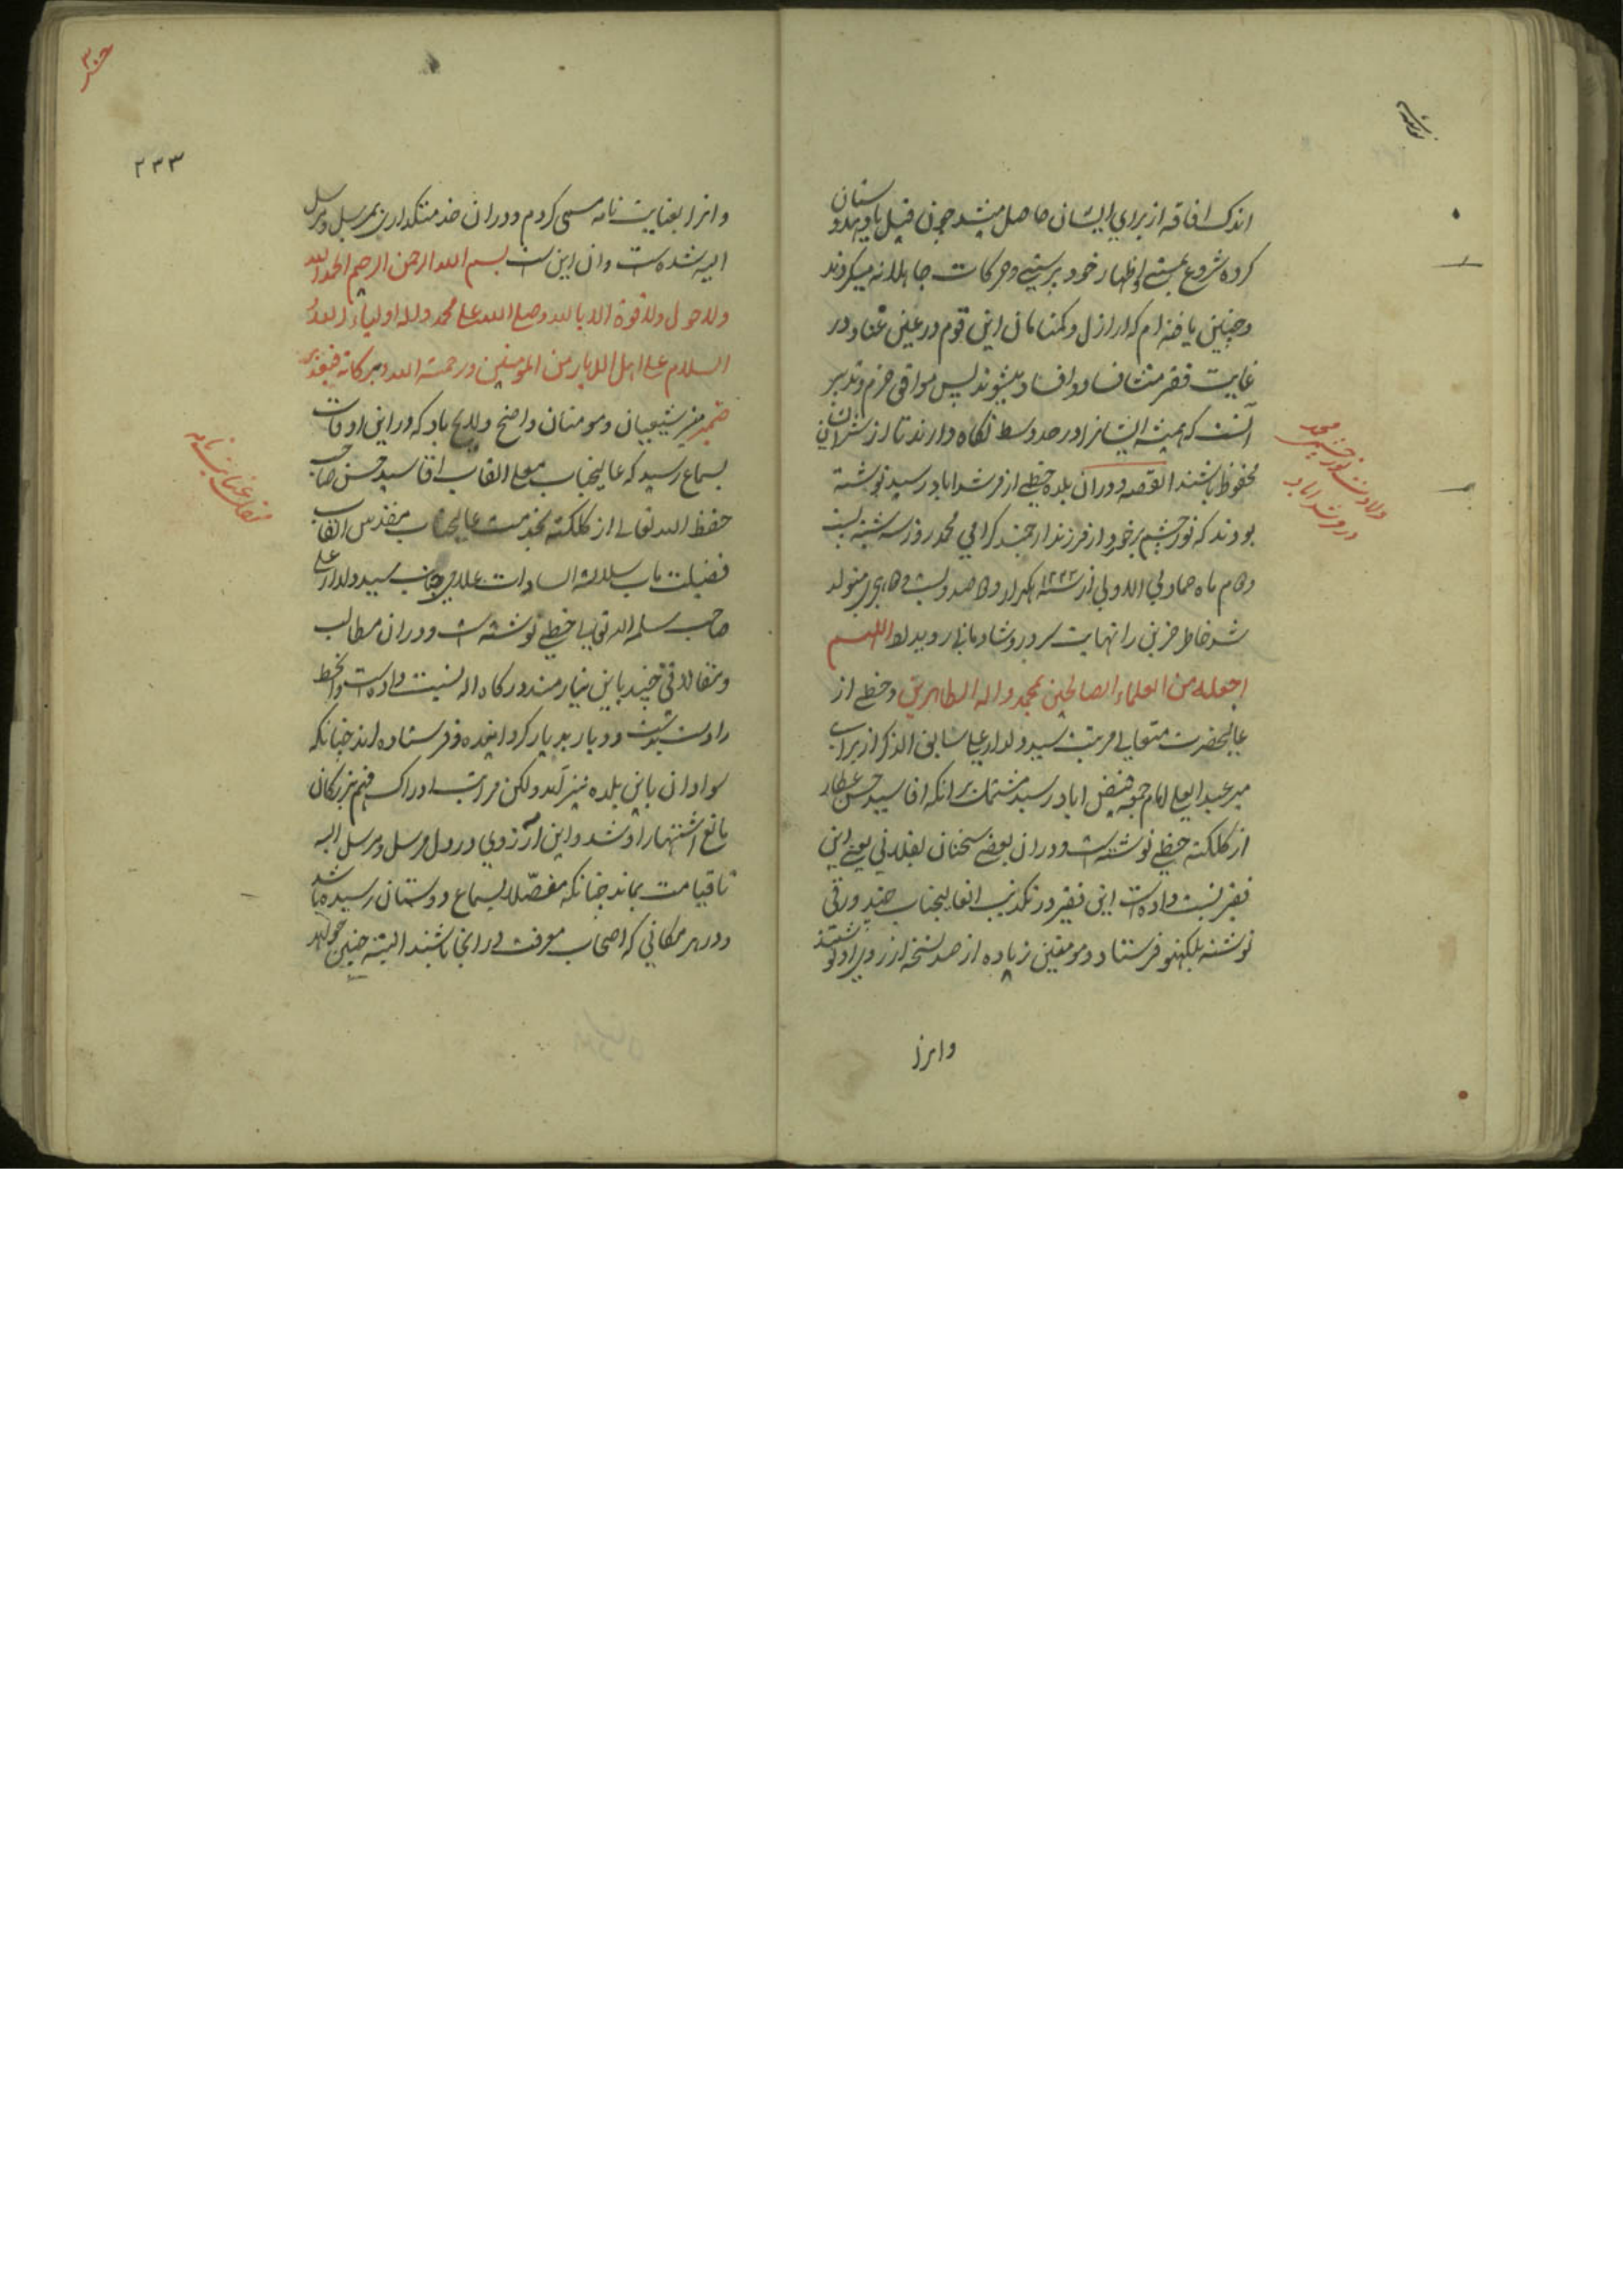 اندک افاقه از برای ایشان حاصل میشد چون فیل یاد هندوستان
کرده شروع بمستی و اظهار خود پرستی و حرکات جاهلانه میکردند
و چنین یافته ام که اراذل و کمنامان این قوم در عین غنا و در
غایت فقر منشا فساد و افساد میشوند پس موافق حزم و تدبیر
آنست که همیشه ایشانرا در حد وسط نکاه دارند تا از شر ایشان
محفوظ باشند القصه در ان بلده خطی از مرشداباد رسید نوشته
بودند که نور چشم برخوردار فرزند ارجمند کرامی محمد روز سه شنبه بیست
ماه جمادی الاولی از سنه ۱۲۲۳ یکهزار و دو صد و بیست و هجری متولد
شد خاطر حزین را نهایت سرور و شادمانی روید لد اللهم
اجعله من العلماء الصالحین بمحمد واله الطاهرین و خطی از
عالیحضرت متعالی مرتبت سید دلدار علی سابق الذکر از برای
میر عبد العلی امام جمعه فیض اباد رسید مشتمل بر انکه اقا سید حسن عطار
از کلکته خطی نوشته است و در ان بعضی سخنان بفلانی یعنی این
فقیر نسبت داده است این فقیر در تکذیب انعالیجناب چند ورقی
نوشته بلکهنو فرستاد و مومنین زیاده از صد نسخه از روی او نوشتند
وانرا
ولادت نور چشمی محمد
در مرشداباد
۲۳۳
وانرا بعنایت نامه مسمی کردم و در ان خدمتکذاری بمرسل و مرسل
الیه شده است و ان این است بسم الله الرحمن الرحیم الحمد لله
ولا حول ولا قوة الا بالله وصلی الله علی محمد واله اولیاء العدل
السلام علی اهل الدیار من المؤمنین ورحمة الله وبرکاته فبعد بر
ضمیر منیر شیعیان و مومنان واضح و لایح باد که در این اوقات
بسماع رسید که عالیجناب معلی القاب اقا سید حسن صاحب
حفظه الله تعالی از کلکته بخدمت عالیجناب مقدس القاب
فضیلت ماب سلالة السادات علامی جناب سید دلدار علی
صاحب سلمه الله تعالی خطی نوشته است و در ان مطالب
و مقالاتی چند باین نیازمند درکاه اله نسبت داده است و انخط
را دست بدست و دیار بدیار کردانیده و فرستاده اند چنانکه
سواد ان باین بلده نیز آمد ولکن مراتب ادراک و فهم بزرکان
مانع اشتهار او شد و این آرزوی در دل مرسل و مرسل الیه
تا قیامت بماند چنانکه مفصّلا بسماع دوستان رسیده باشد
و در هر مکانی که اصحاب معرفت در انجا باشند البته چنین خواهد
نقل عنایت نامه